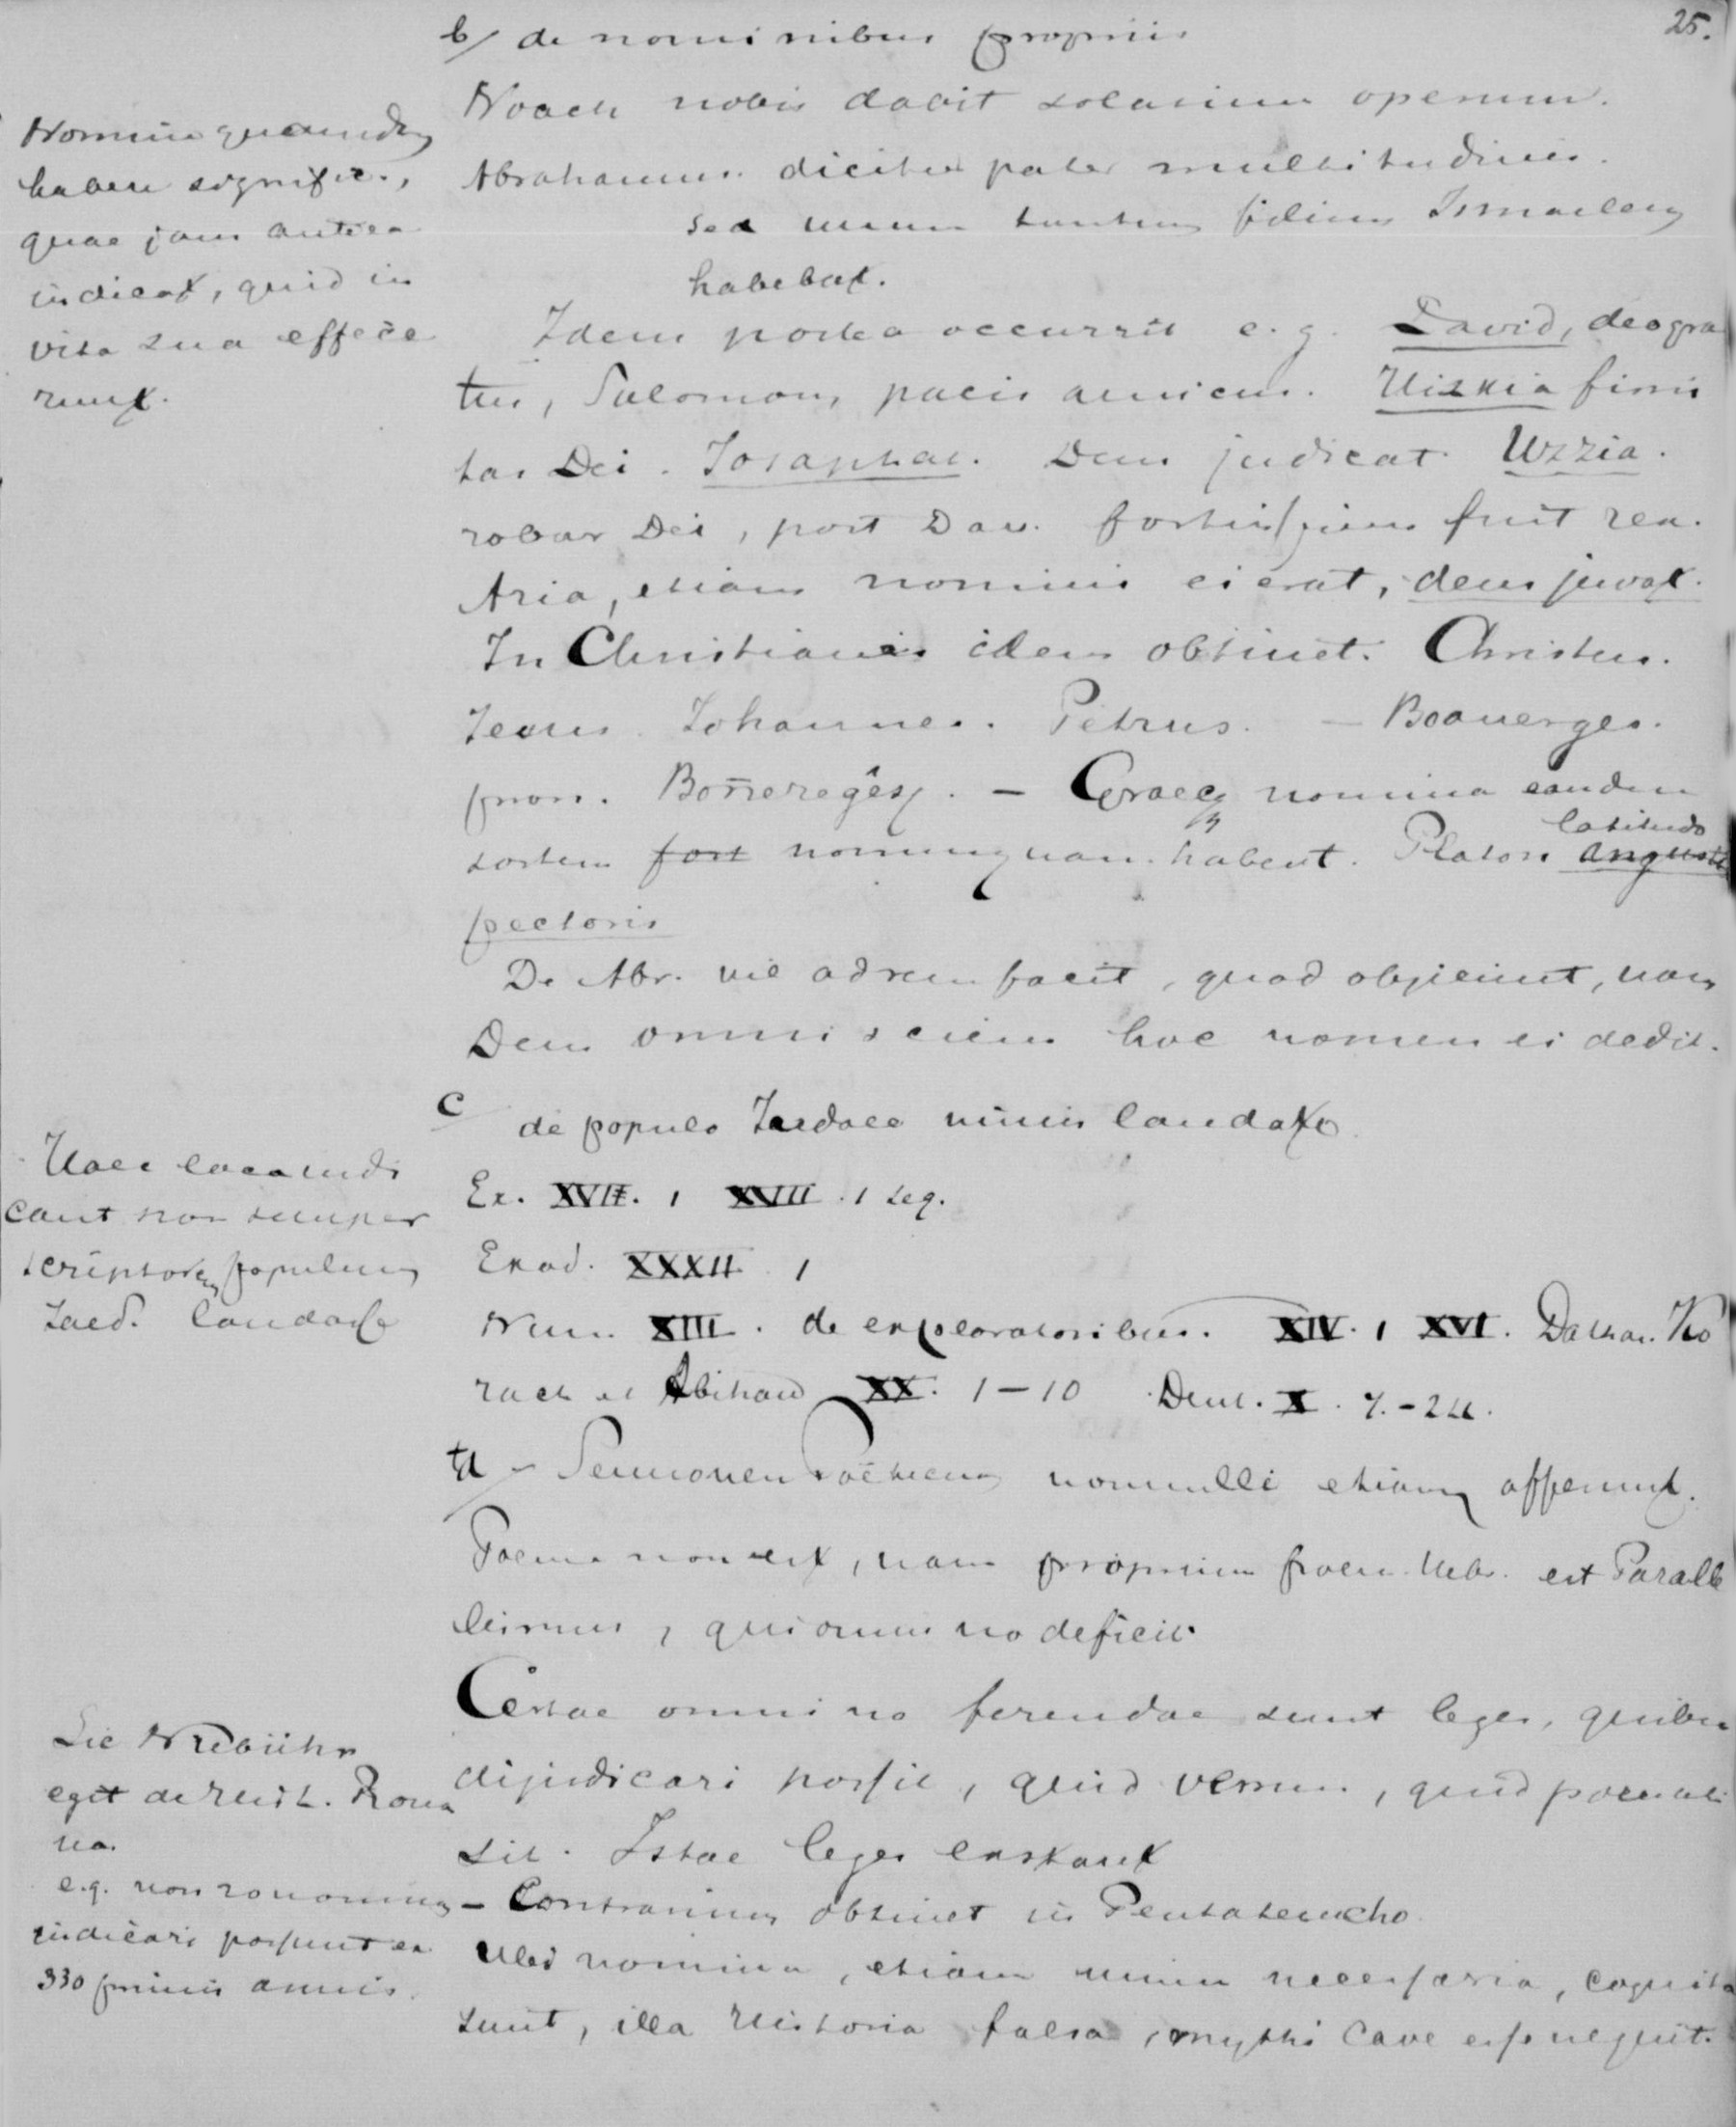 25.
b/ de nominibus propriis
Noach nobis dabit solatium operum.
Abrahamus dicitur pater multitudinis.
sed unum tantum filium Ismaelem
habebat.
Nomina quaedam
habere signific.,
quae jam antea
indicat, quid in
vita sua effece
runt.
Idem postea occurrit e. g. David, deo gra
tus, Salomon, pacis amicus. Hiskia firmi
tas Dei. Josaphat. Deus judicat. Uzzia.
robur Dei, post Dav. fortissimus fuit rex.
Asia, etiam nominis ei erat, deus juvat.
In Christianis idem obtinet. Christus.
Jesus. Johannes. Petrus. — Boanerges.
pron. Bonereges. — Graeca nomina eandem
sortem fort nonnunquam habent. Platon angusti
latitudo
pectoris
De Abr. nil ad rem facit, quod objiciunt, nam
Deus omnisciens hoc nomen ei dedit.
c de populo Judaeo nimis laudato.
Ex. XVII. 1 XVIII. 1 seq.
Exod. XXXII. 1
Num. XIII. de exploratoribus. XIV. 1 XVI. Dathan. Ko
rach et Abihau XX. 1–10 Deut. X. 7.–24.
Haec loca indi
cant non semper
scriptorem populum
Jued. laudasse
d – Sermonem Poeticum nonnulli etiam afferunt.
Poema non est, nam proprium poes. Hebr. est Paralle
lismus, qui omnino deficit.
Certae omnino ferendae sunt leges, quibus
dijudicari possit, quid verum, quid poematis
sit. Istae leges exstant
– Contrarium obtinet in Pentateucho.
Ubi nomina, etiam minim necessaria, cognita
sunt, illa Historia falsa, mythicave esse nequit.
Sic Niebuhr
egit de Hist. Roma
na.
e.g. non zonomina
indicari possunt ex
330 primis annis.